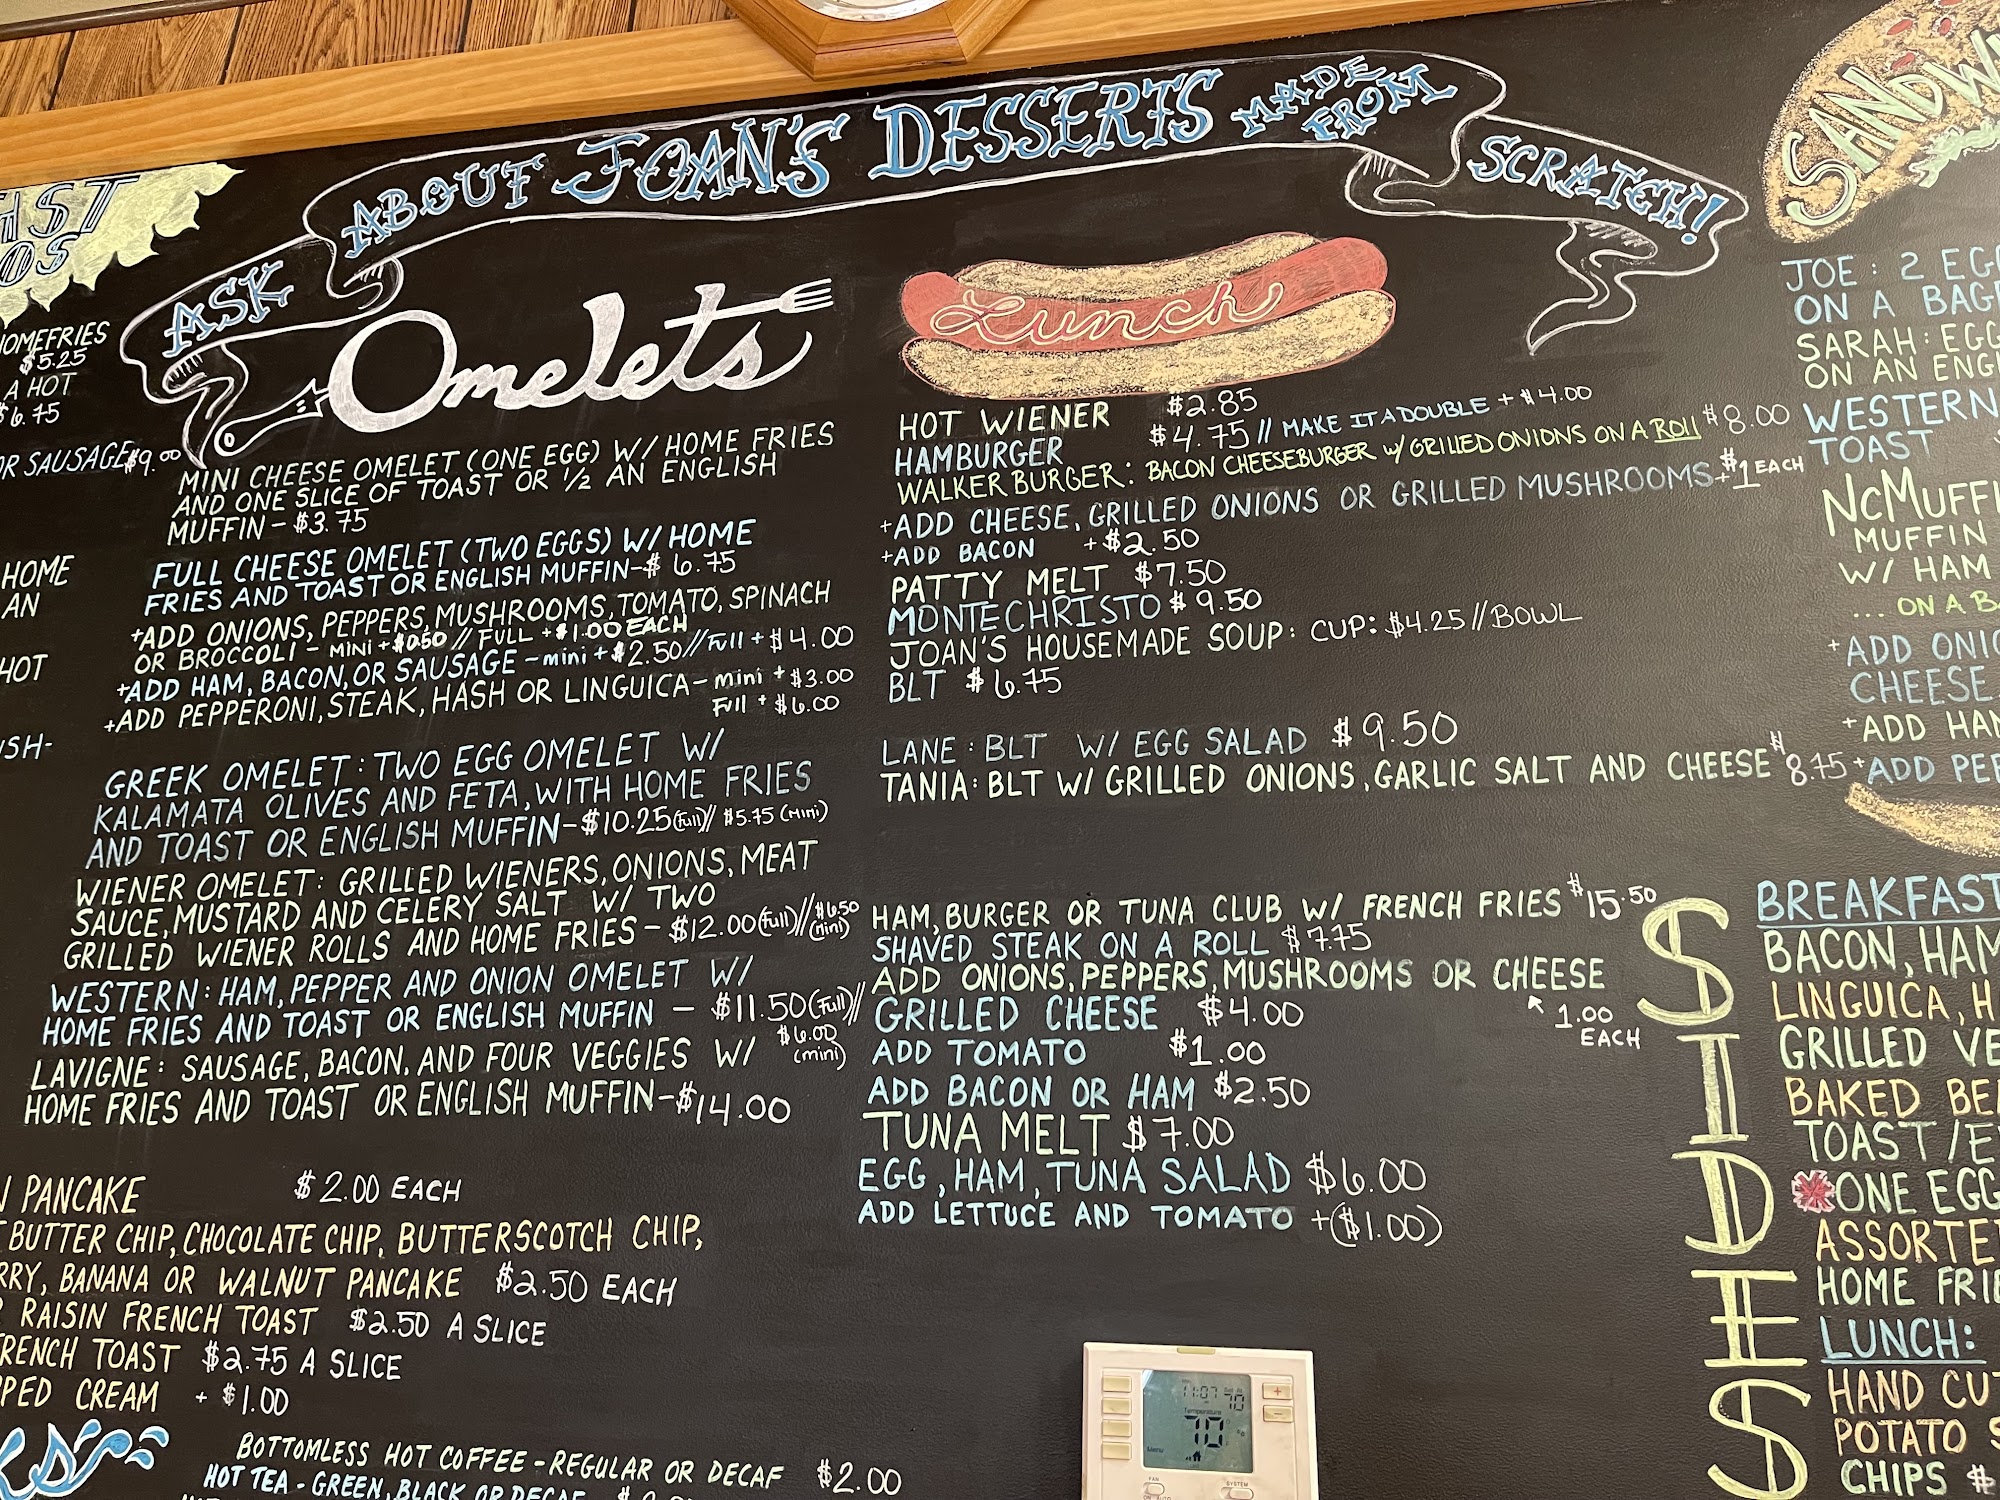 ASK ABOUT JOAN'S DESSERTS MADE FROM SCRATCH!
HOMEFRIES
$5.25
A HOT
$6.75
OR SAUSAGE $9.00
HOME
AN
HOT
Omelets
MINI CHEESE OMELET (ONE EGG) W/ HOME FRIES
AND ONE SLICE OF TOAST OR 1/2 AN ENGLISH
MUFFIN - $3.75
FULL CHEESE OMELET (TWO EGGS) W/ HOME
FRIES AND TOAST OR ENGLISH MUFFIN - $6.75
+ADD ONIONS, PEPPERS, MUSHROOMS, TOMATO, SPINACH
OR BROCCOLI - MINI + $0.50 // FULL + $1.00 EACH
+ADD HAM, BACON, OR SAUSAGE - mini + $2.50 // Full + $4.00
+ADD PEPPERONI, STEAK, HASH OR LINGUICA - mini + $3.00
Full + $6.00
GREEK OMELET: TWO EGG OMELET W/
KALAMATA OLIVES AND FETA, WITH HOME FRIES
AND TOAST OR ENGLISH MUFFIN - $10.25 (Full) // $5.75 (MINI)
WIENER OMELET: GRILLED WIENERS, ONIONS, MEAT
SAUCE, MUSTARD AND CELERY SALT W/ TWO
GRILLED WIENER ROLLS AND HOME FRIES - $12.00 (Full) // $6.50 (mini)
WESTERN: HAM, PEPPER AND ONION OMELET W/
HOME FRIES AND TOAST OR ENGLISH MUFFIN - $11.50 (Full) //
$6.00
(mini)
LAVIGNE: SAUSAGE, BACON, AND FOUR VEGGIES W/
HOME FRIES AND TOAST OR ENGLISH MUFFIN - $14.00
PANCAKE $2.00 EACH
BUTTER CHIP, CHOCOLATE CHIP, BUTTERSCOTCH CHIP,
BANANA OR WALNUT PANCAKE $2.50 EACH
RAISIN FRENCH TOAST $2.50 A SLICE
FRENCH TOAST $2.75 A SLICE
CREAM + $1.00
BOTTOMLESS HOT COFFEE - REGULAR OR DECAF $2.00
HOT TEA - GREEN, BLACK OR DECAF
Lunch
HOT WIENER $2.85
HAMBURGER $4.75 // MAKE IT A DOUBLE + $4.00
WALKER BURGER: BACON CHEESEBURGER W/ GRILLED ONIONS ON A ROLL $8.00
+ADD CHEESE, GRILLED ONIONS OR GRILLED MUSHROOMS +$1 EACH
+ADD BACON +$2.50
PATTY MELT $7.50
MONTECHRISTO $9.50
JOAN'S HOUSEMADE SOUP: CUP: $4.25 // BOWL
BLT $6.75
LANE: BLT W/ EGG SALAD $9.50
TANIA: BLT W/ GRILLED ONIONS, GARLIC SALT AND CHEESE $8.75
HAM, BURGER OR TUNA CLUB W/ FRENCH FRIES $15.50
SHAVED STEAK ON A ROLL $7.75
ADD ONIONS, PEPPERS, MUSHROOMS OR CHEESE
1.00
EACH
GRILLED CHEESE $4.00
ADD TOMATO $1.00
ADD BACON OR HAM $2.50
TUNA MELT $7.00
EGG, HAM, TUNA SALAD $6.00
ADD LETTUCE AND TOMATO +($1.00)
11:07 70
Temperature
70
FAN
SYSTEM
JOE: 2
ON A
SARAH:
ON AN
WESTERN
TOAST
MUFFIN
W/ HAM
... ON A
+ADD
CHEESE
+ADD
+ADD
SIDES
BREAKFAST
BACON, HAM
LINGUICA,
GRILLED
BAKED
TOAST/
ONE EGG
HOME
LUNCH:
HAND
POTATO
CHIPS $